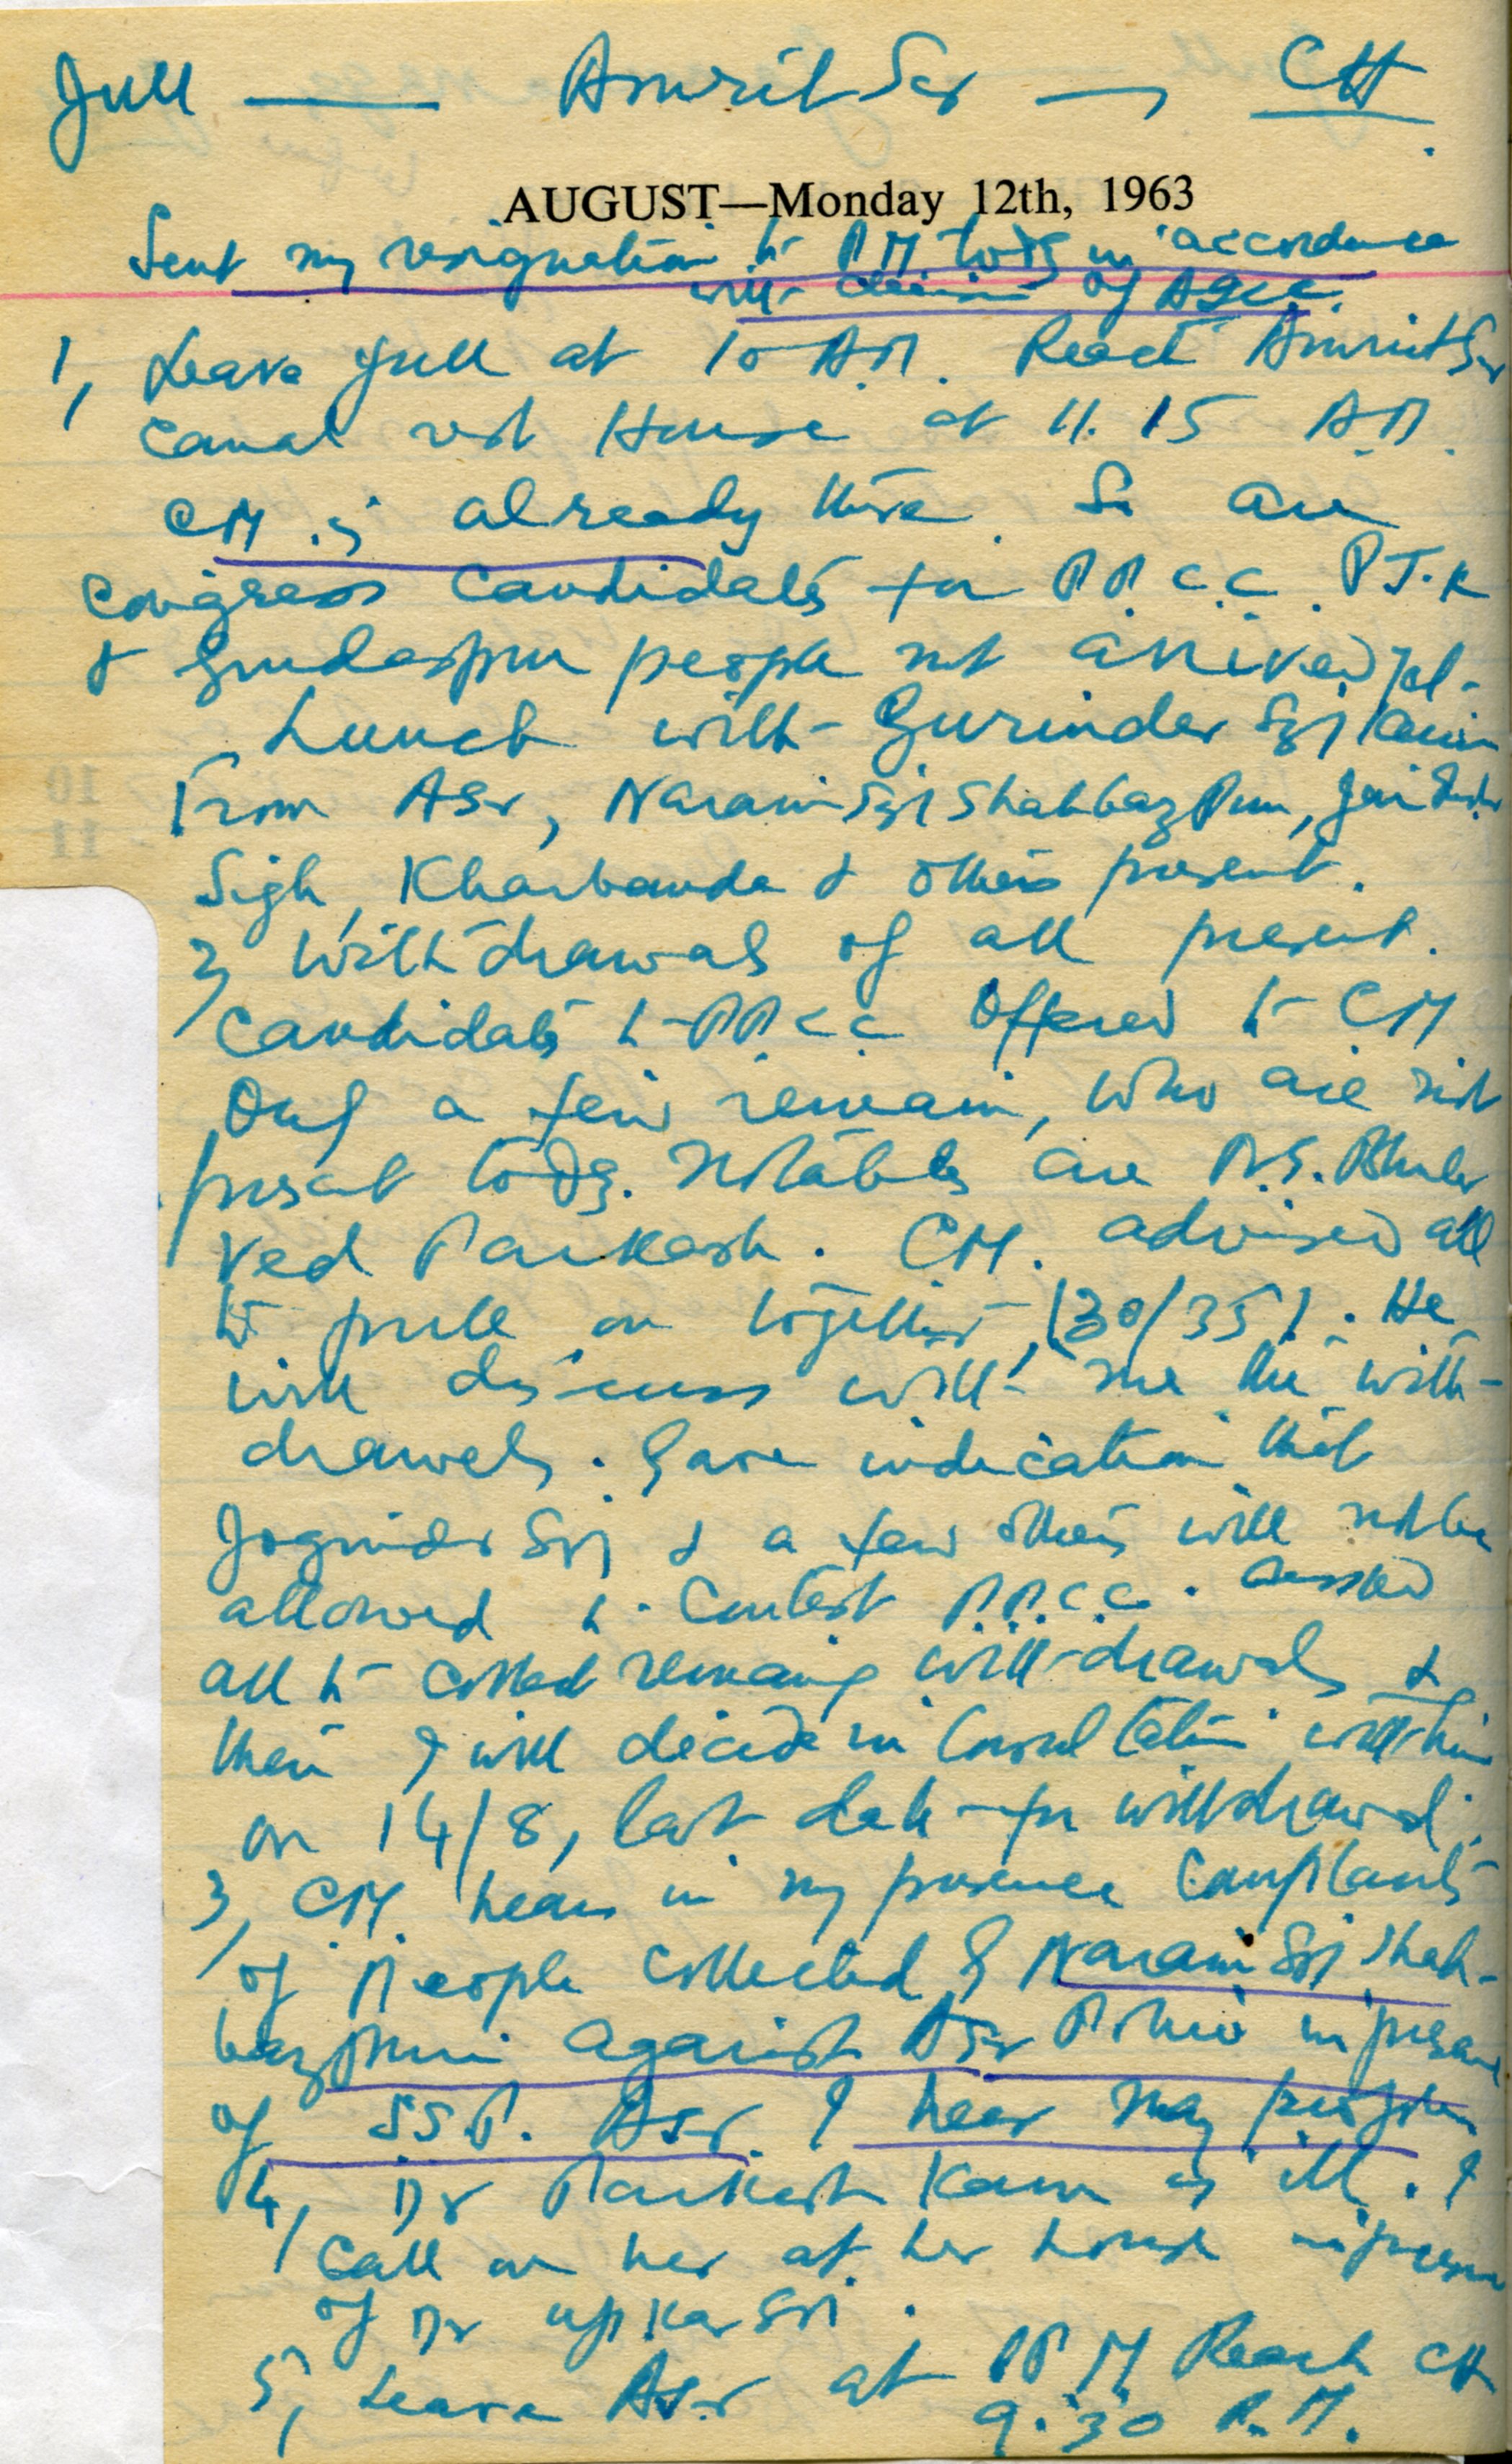 Jull — Amrit Sar — CH
AUGUST—Monday 12th, 1963
Sent my resignation to PM today in accordance
with decision of AICC
1, Leave Jull at 10 A.M. Reach Amrit Sar
Canal rest House at 11.15 A.M.
CM is already there. So are
Congress Candidates for P.P.C.C. PTK
& Gurdaspur people not arrived yet-
Lunch with Gurinder Sgh
From ASr, Narain Sgh Shahbazpuri,
Sigh, Kharbanda & others present.
2, Withdrawals of all present
Candidates to P.P.C.C offered to CM
Only a few remain, who are not
present today. Notables are
Ved Parkash. CM. advised all
to pull on together (30/35). He
will discuss with me the with-
drawals. Gave indication that
Joginder Sgh & a few others will not be
allowed to Contest P.P.C.C. asked
all to collect remaining withdrawals &
then I will decide in Consultation with him
on 14/8, last date for withdrawal.
3, CM hears in my presence Complaints
of People collected by Narain Sgh Shah-
bazpuri against ASr Police in presence
of SSP. ASr. I hear many people
4, Dr Parkash Kaur is ill. I
Call on her at her house in presence
of Dr Upkar Sgh.
5, Leave ASr at PM Reach CH
9.30 P.M.